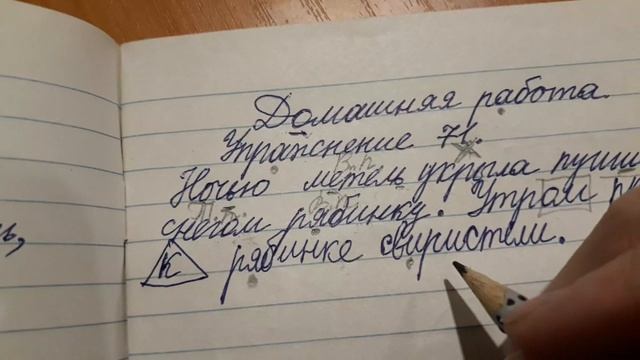 Домашная работа.
Упражнение 71.
Ночью метель укрыла
снегом рябинку. Утром
к рябинке свиристели.